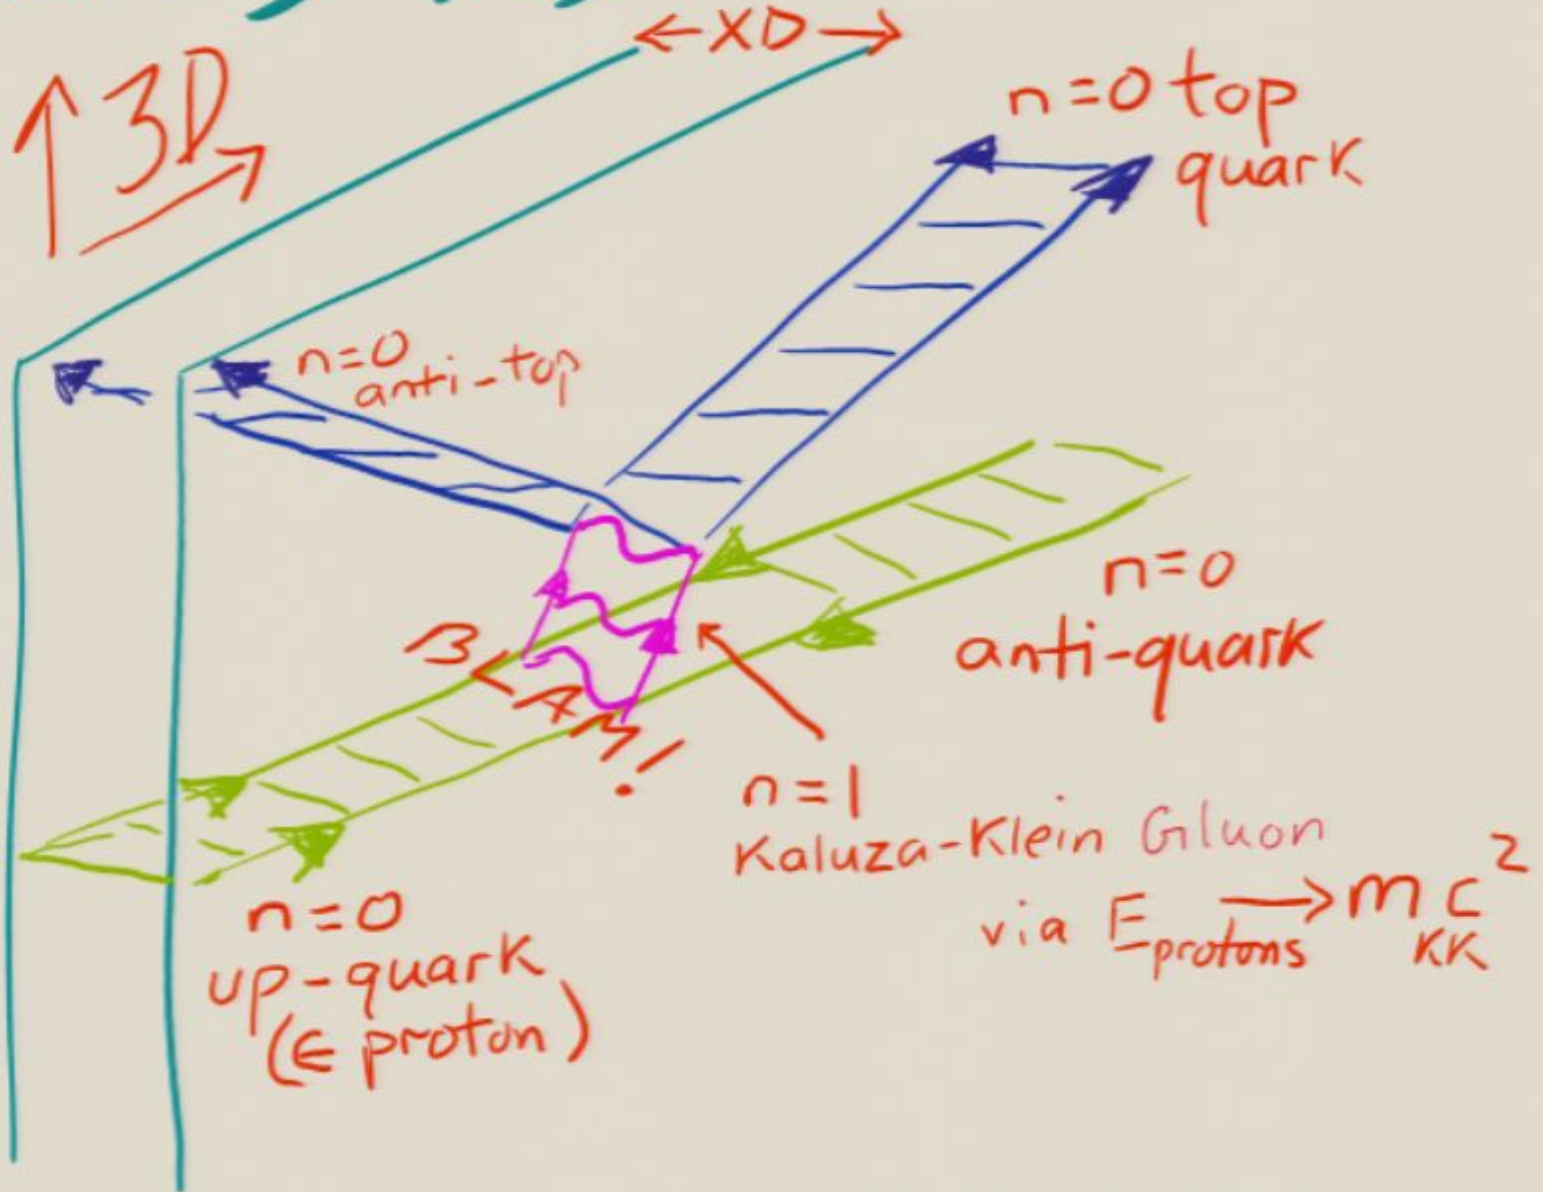 ←XD→
3D
n=0 top
quark
n=0
anti-top
n=0
anti-quark
BAM!
n=1
Kaluza-Klein Gluon
via E_protons → m_KK c²
n=0
up-quark
(∈ proton)